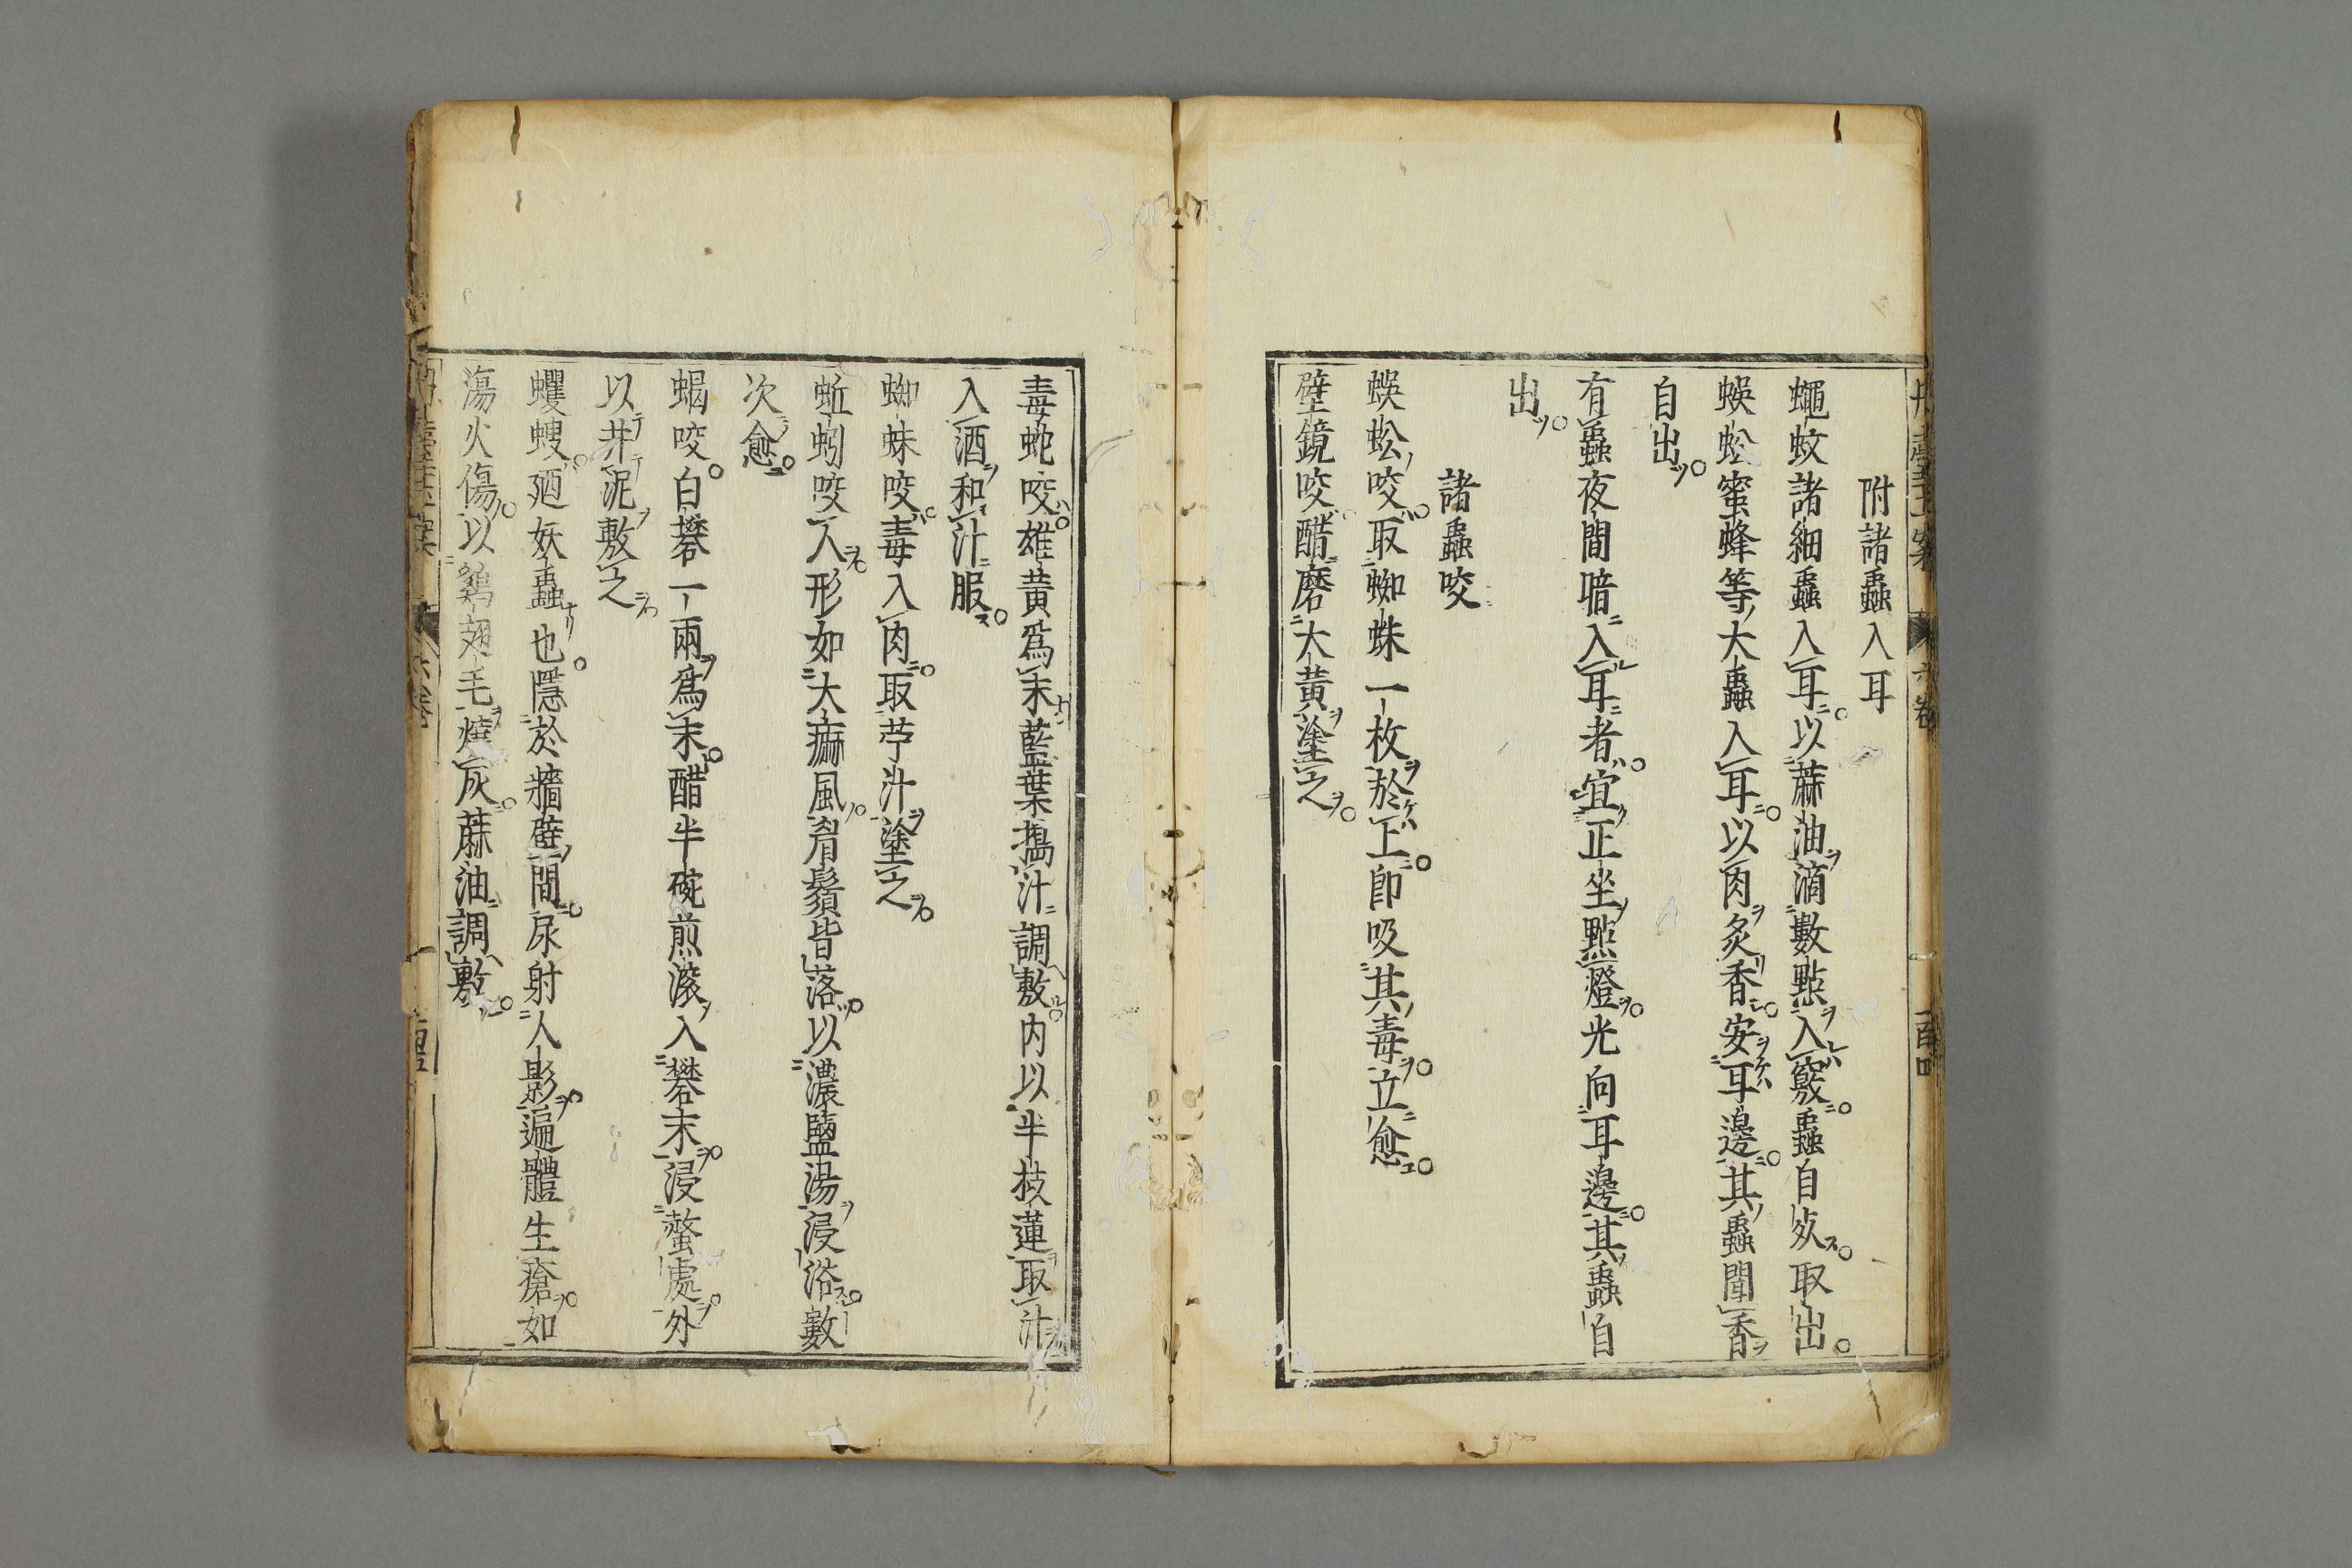 附諸蟲入耳
蠅蚊諸細蟲入耳以蔴油滴數點入竅蟲自死取出
蜈蚣蜜蜂等大蟲入耳以肉炙香安耳邊其蟲聞香
自出
有蟲夜間暗入耳者宜正坐點燈光向耳邊其蟲自
出
諸蟲咬
蜈蚣咬取蜘蛛一枚於上卽吸其毒立愈
壁鏡咬醋磨大黃塗之
毒蛇咬雄黃爲末藍葉搗汁調敷内以半枝蓮取汁
入酒和汁服
蜘蛛咬毒入肉取苧汁塗之
蚯蚓咬人形如大痲風眉鬚皆落以濃鹽湯浸浴數
次愈
蝎咬白礬一兩爲末醋半碗煎滚入礬末浸螫處外
以井泥敷之
蠼螋廼妖蟲也隱於牆壁間尿射人影遍體生瘡如
湯火傷以鷄翅毛燒灰蔴油調敷